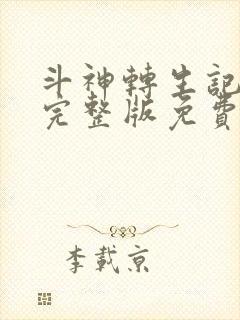 斗神轉生記
完整版免費
李載京